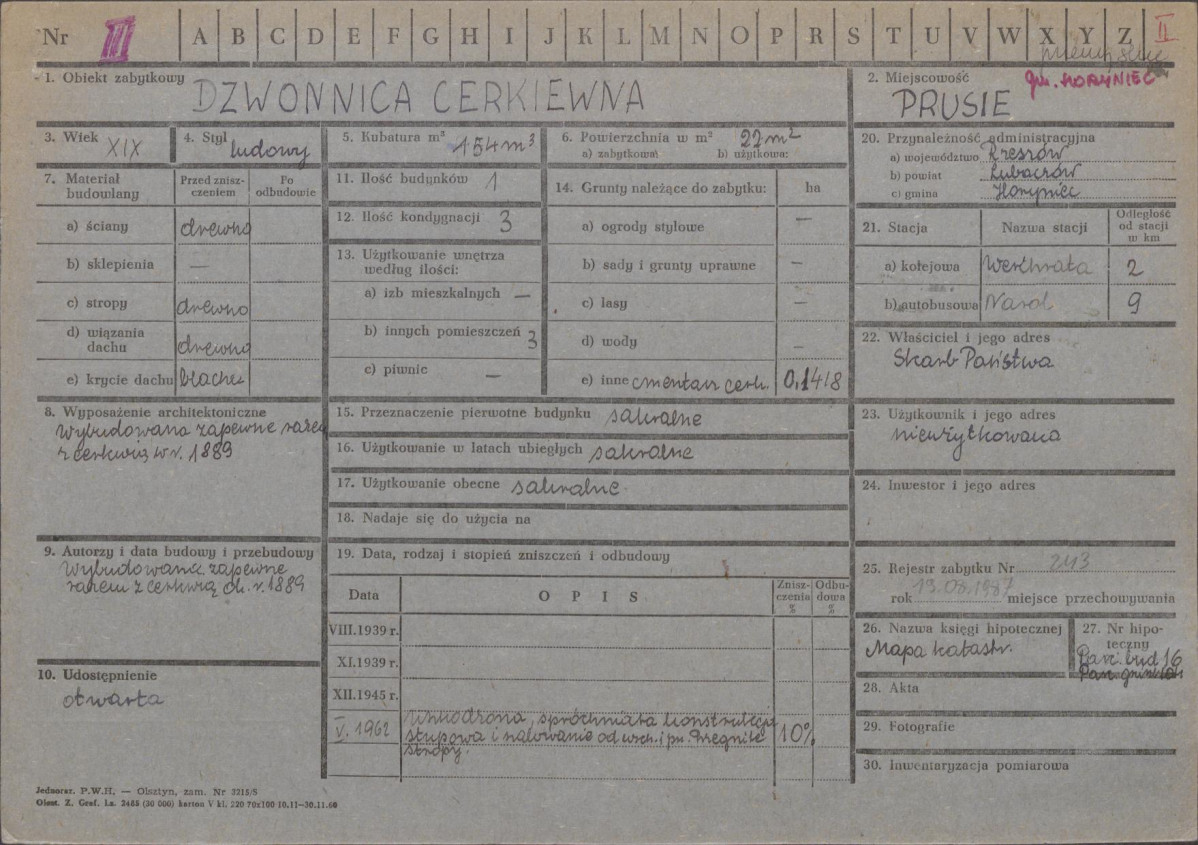 Nr III A B C D E F G H I J K L M N O P R S T U V W X Y Z II
1. Obiekt zabytkowy
DZWONNICA CERKIEWNA
2. Miejscowość
gm. HORYNIEC
PRUSIE
3. Wiek XIX
4. Styl ludowy
5. Kubatura m³ 154 m³
6. Powierzchnia w m² 22 m²
a) zabytkowa: b) użytkowa:
20. Przynależność administracyjna
a) województwo Rzeszów
b) powiat Lubaczów
c) gmina Horyniec
7. Materiał budowlany
Przed zniszczeniem
Po odbudowie
a) ściany drewno
b) sklepienia —
c) stropy drewno
d) wiązania dachu drewno
e) krycie dachu blacha
11. Ilość budynków 1
12. Ilość kondygnacji 3
13. Użytkowanie wnętrza
według ilości:
a) izb mieszkalnych —
b) innych pomieszczeń 3
c) piwnic —
14. Grunty należące do zabytku: ha
a) ogrody stylowe —
b) sady i grunty uprawne —
c) lasy —
d) wody —
e) inne cmentarz cerk. 0,1418
21. Stacja
Nazwa stacji
Odległość
od stacji
w km
a) kolejowa Werchrata 2
b) autobusowa Narol 9
22. Właściciel i jego adres
Skarb Państwa
8. Wyposażenie architektoniczne
Wybudowana zapewne razem
z cerkwią w r. 1889
15. Przeznaczenie pierwotne budynku sakralne
16. Użytkowanie w latach ubiegłych sakralne
17. Użytkowanie obecne sakralne.
18. Nadaje się do użycia na
23. Użytkownik i jego adres
nieużytkowana
24. Inwestor i jego adres
9. Autorzy i data budowy i przebudowy
Wybudowana zapewne
razem z cerkwią ok. r. 1889
10. Udostępnienie
otwarta
19. Data, rodzaj i stopień zniszczeń i odbudowy
Data
O P I S
Zniszczenia %
Odbudowa %
VIII.1939 r.
XI.1939 r.
XII.1945 r.
V. 1962
uszkodzona, spróchniała konstrukcja
słupowa i szalowanie od wsch. i pn. Przegniłe
stropy.
10%
25. Rejestr zabytku Nr 243
rok 19.08.1987 miejsce przechowywania
26. Nazwa księgi hipotecznej
Mapa katastr.
27. Nr hipoteczny
Parc. bud 16
28. Akta
29. Fotografie
30. Inwentaryzacja pomiarowa
Jednoraz. P.W.H. — Olsztyn, zam. Nr 3215/S
Olszt. Z. Graf. Lz. 2465 (30 000) karton V kl. 220 70x100 10.11—30.11.60